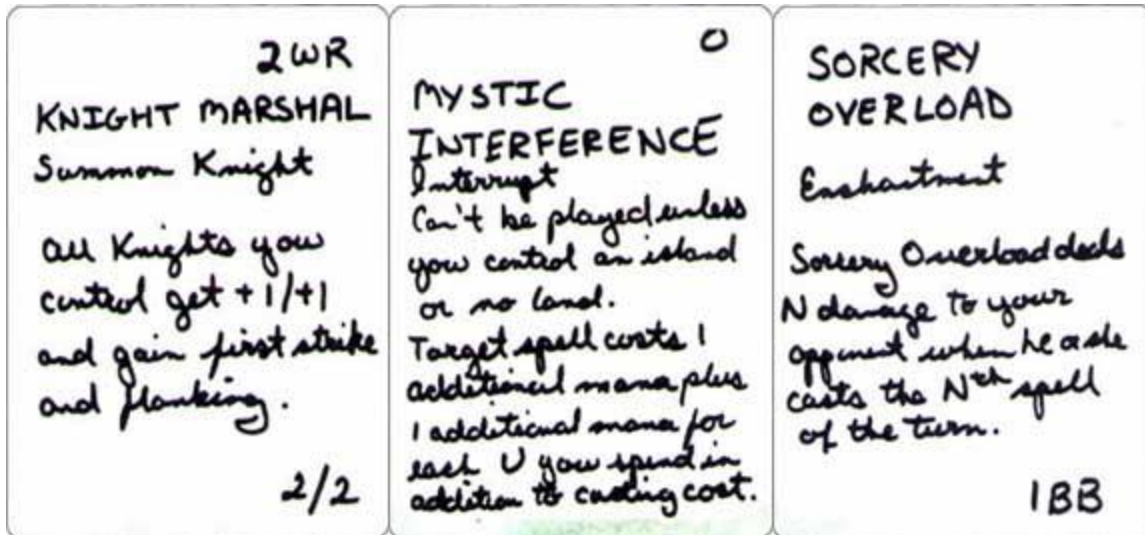 2WR
KNIGHT MARSHAL
Summon Knight
All Knights you
control get +1/+1
and gain first strike
and flanking.
2/2
0
MYSTIC
INTERFERENCE
Interrupt
Can't be played unless
you control an island
or no land.
Target spell costs 1
additional mana plus
1 additional mana for
each U you spend in
addition to casting cost.
SORCERY
OVERLOAD
Enchantment
Sorcery Overload deals
N damage to your
opponent when he or she
casts the Nth spell
of the turn.
1BB